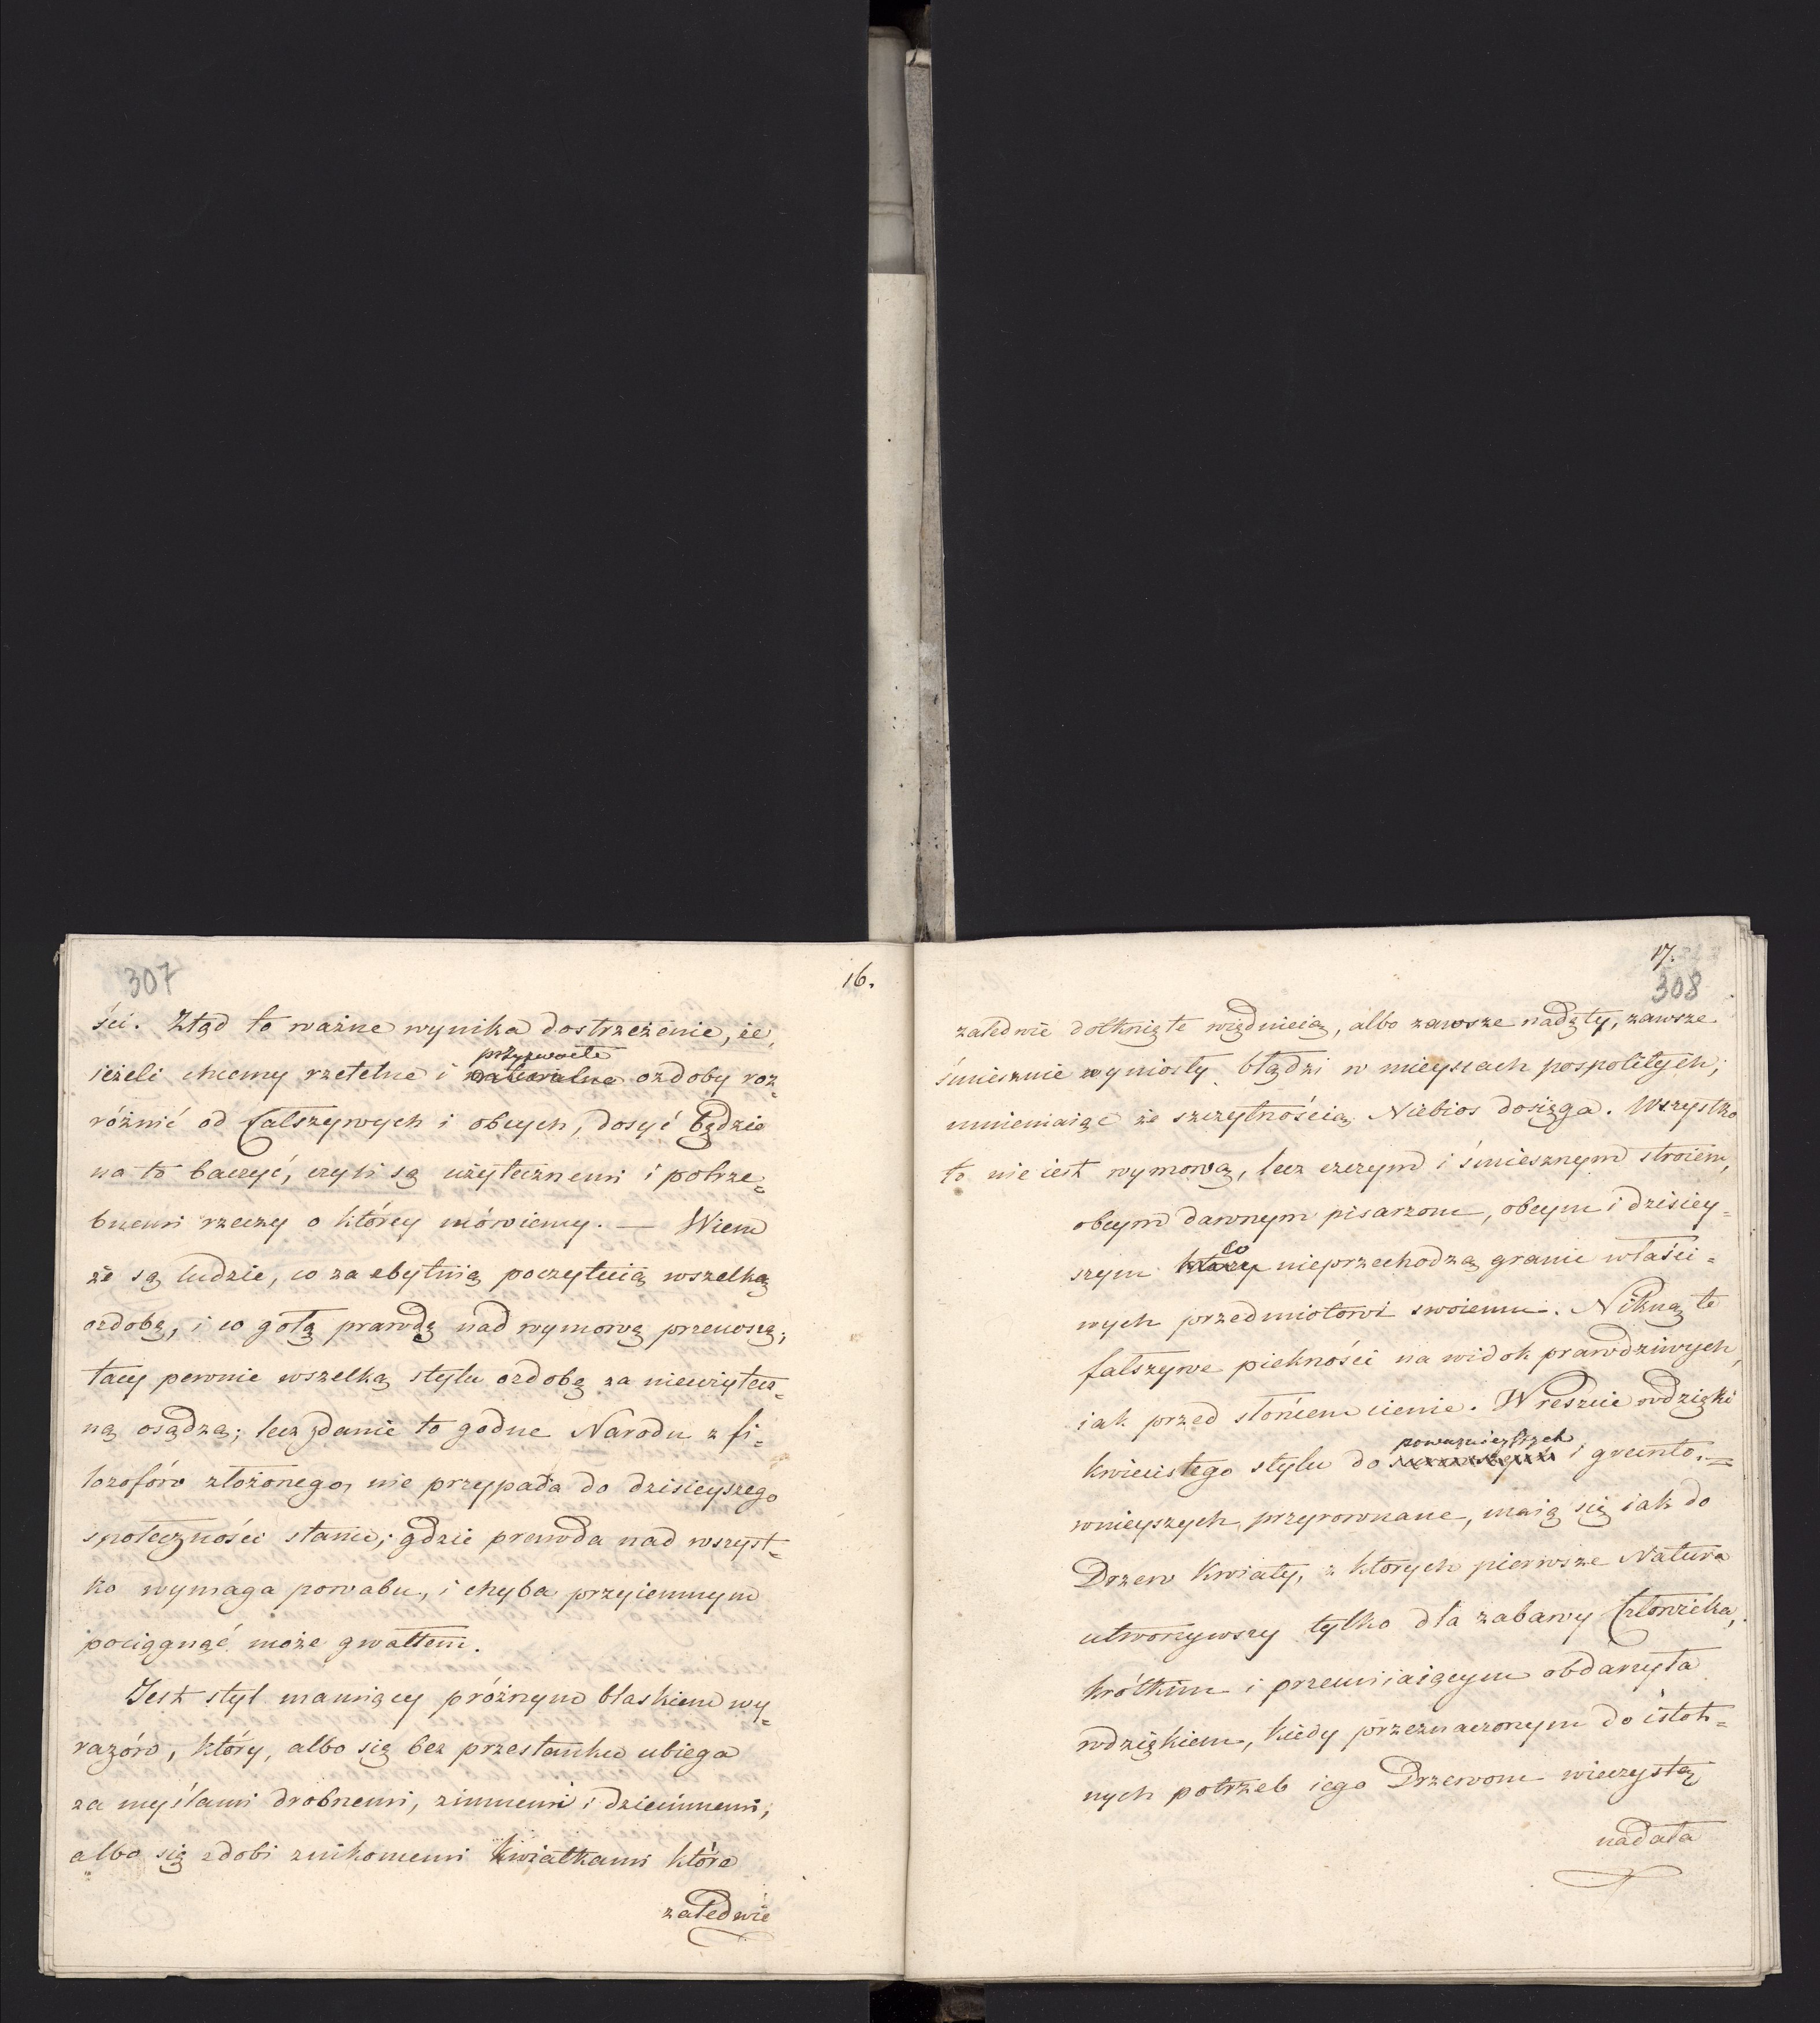 307
16.
ści. Ztąd to ważne wynika dostrzeżenie, że,
ieżeli chcemy rzetelne i naturalne ozdoby roz=
przyzwoite
różnić od fałszywych i obcych, dosyć będzie
na to baczyć, czyli są użytecznemi i potrze=
bnemi rzeczy o którey mówiemy. — Wiem
że są ludzie, co za zbytnią poczytuią wszelką
ozdobę, i co gołą prawdę nad wymową przenoszą;
tacy pewnie wszelką stylu ozdobę za nieużytecz=
ną osądzą; lecz zdanie to godne Narodu z fi=
lozofów złożonego, nie przypada do dzisieyszego
społeczności stanu; gdzie prawda nad wszyst=
ko wymaga powabu, i chyba przyiemnym
pociągnąć może gwałtem.
Jest styl mamiący próżnym blaskiem wy=
razów, który, albo się bez przestanku ubiega
za myślami drobnemi, zimnemi i dziecinnemi;
albo się zdobi znikomemi kwiatkami które
zaledwie
17.
308
zaledwie dotknięte więdnieią, albo zawsze nadęty, zawsze
śmiesznie wyniosły błądzi w mieyscach pospolitych;
mniemaiąc że szczytnością Niebios dosięga. Wszystko
to nie iest wymową, lecz czczym i śmiesznym stroiem,
obcym dawnym pisarzom, obcym i dzisiey=
szym którzy nieprzechodzą granic właści=
co
wych przedmiotowi swoiemu. Nikną te
fałszywe piękności na widok prawdziwych,
iak przed słońcem cienie. Wreszcie wdzięki
kwiecistego stylu do i grunto=
poważnieyszych
wnieyszych przyrownane, maią się iak do
Drzew kwiaty, z których pierwsze Natura
utworzywszy tylko dla zabawy Człowieka,
krótkim i przemiiaiącym obdarzyła
wdziękiem, kiedy przeznaczonym do istot=
nych potrzeb iego Drzewom wieczystą
nadała